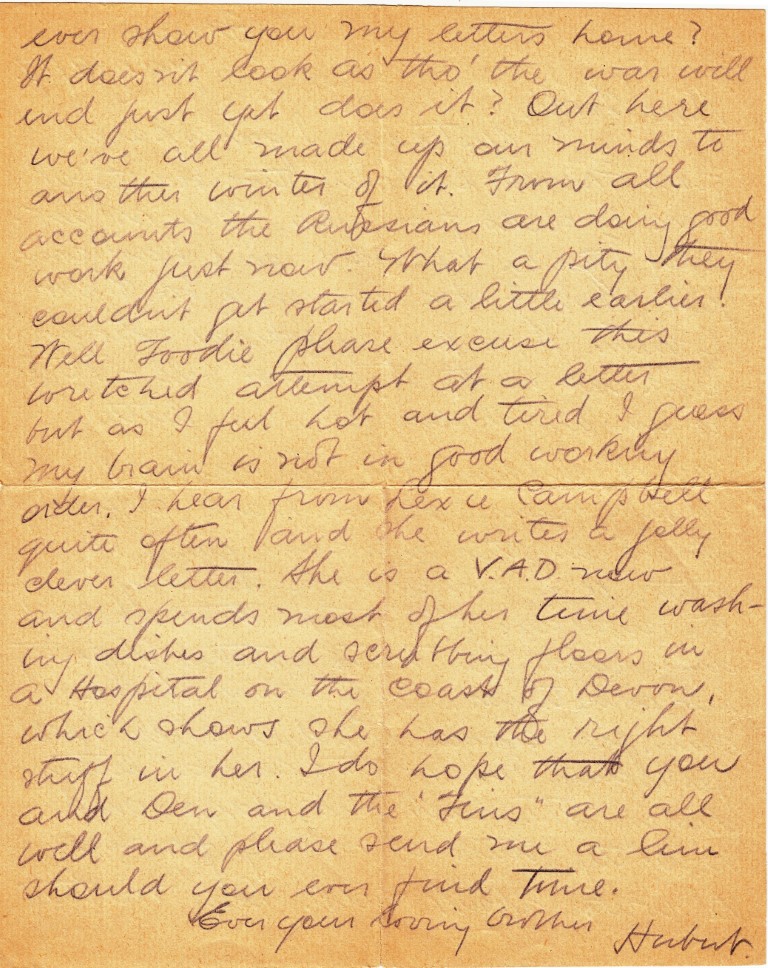 ever show you my letters home?
It doesn't look as tho' the war will
end just yet does it? Out here
we've all made up our minds to
another winter of it. From all
accounts the Russians are doing good
work just now. What a pity they
couldn't get started a little earlier!
Well Foodie please excuse this
wretched attempt at a letter
but as I feel hot and tired I guess
my brain is not in good working
order. I hear from Lexie Campbell
quite often and she writes a jolly
clever letter. She is a V.A.D now
and spends most of her time wash-
ing dishes and scrubbing floors in
a Hospital on the coast of Devon,
which shows she has the right
stuff in her. I do hope that you
and Den and the "Tins" are all
well and please send me a line
should you ever find time.
Ever your loving brother
Hubert.